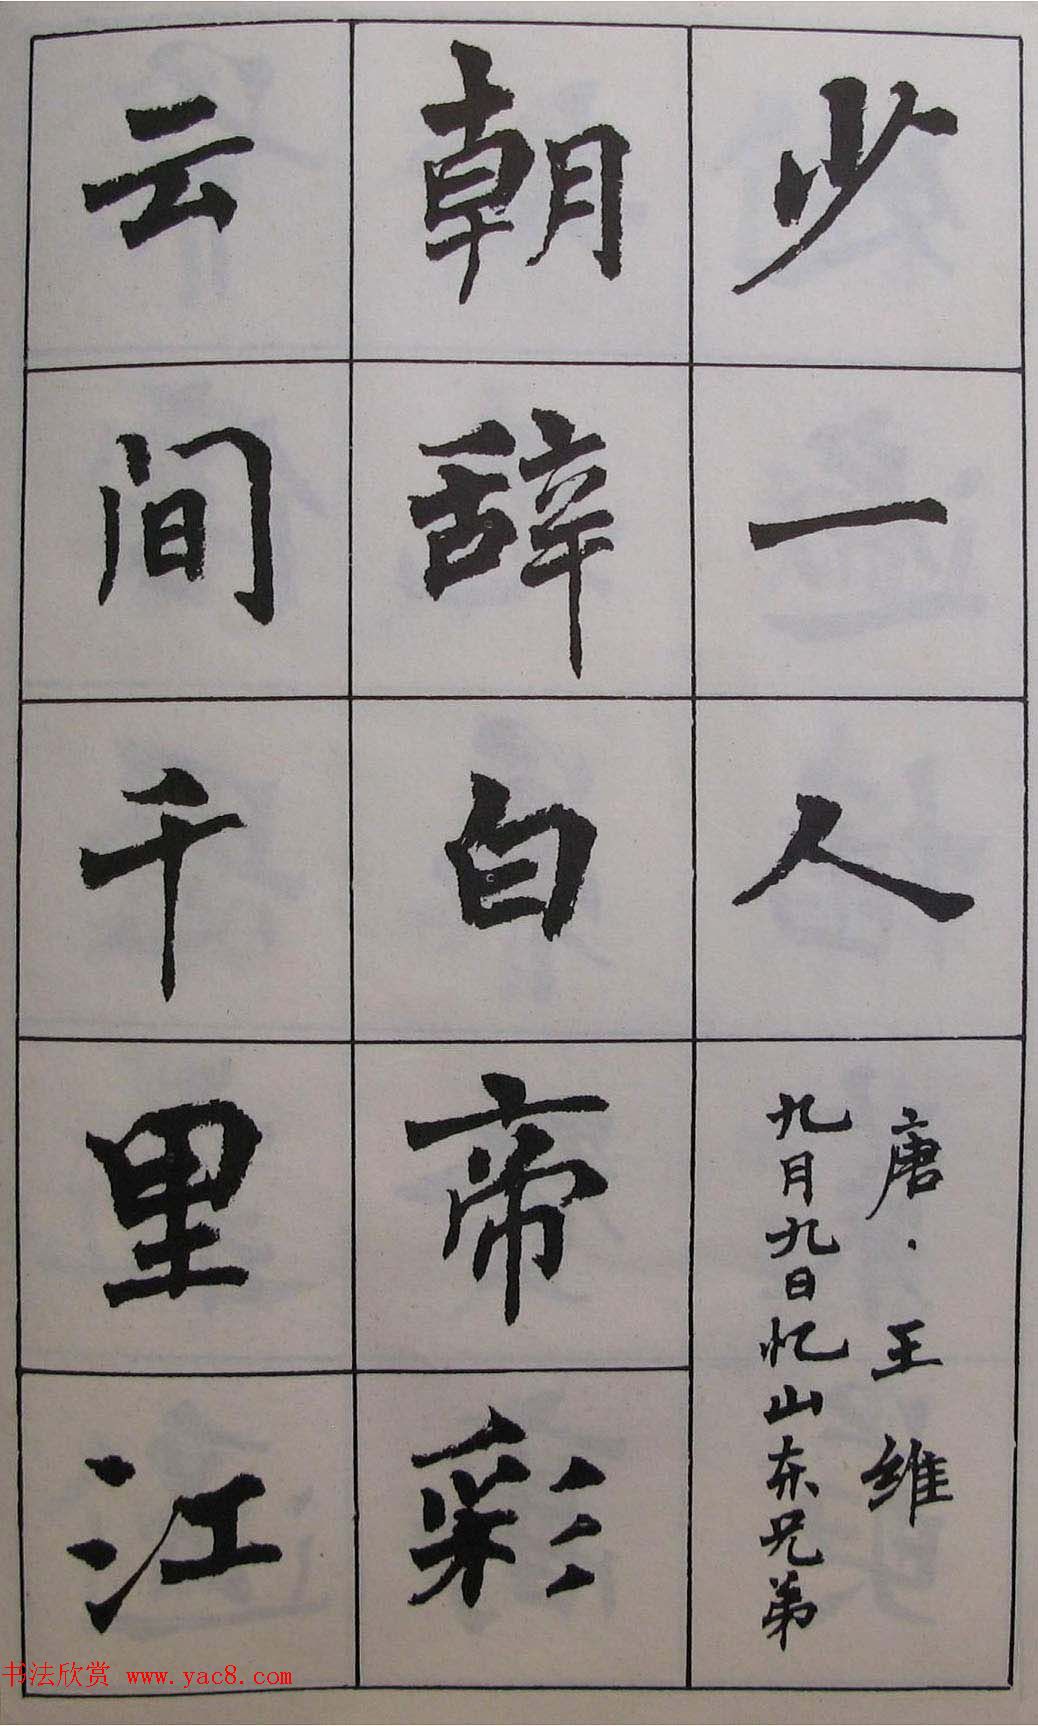 少一人
唐·王维
九月九日忆山东兄弟
朝辞白帝彩
云间千里江
书法欣赏 www.yac8.com